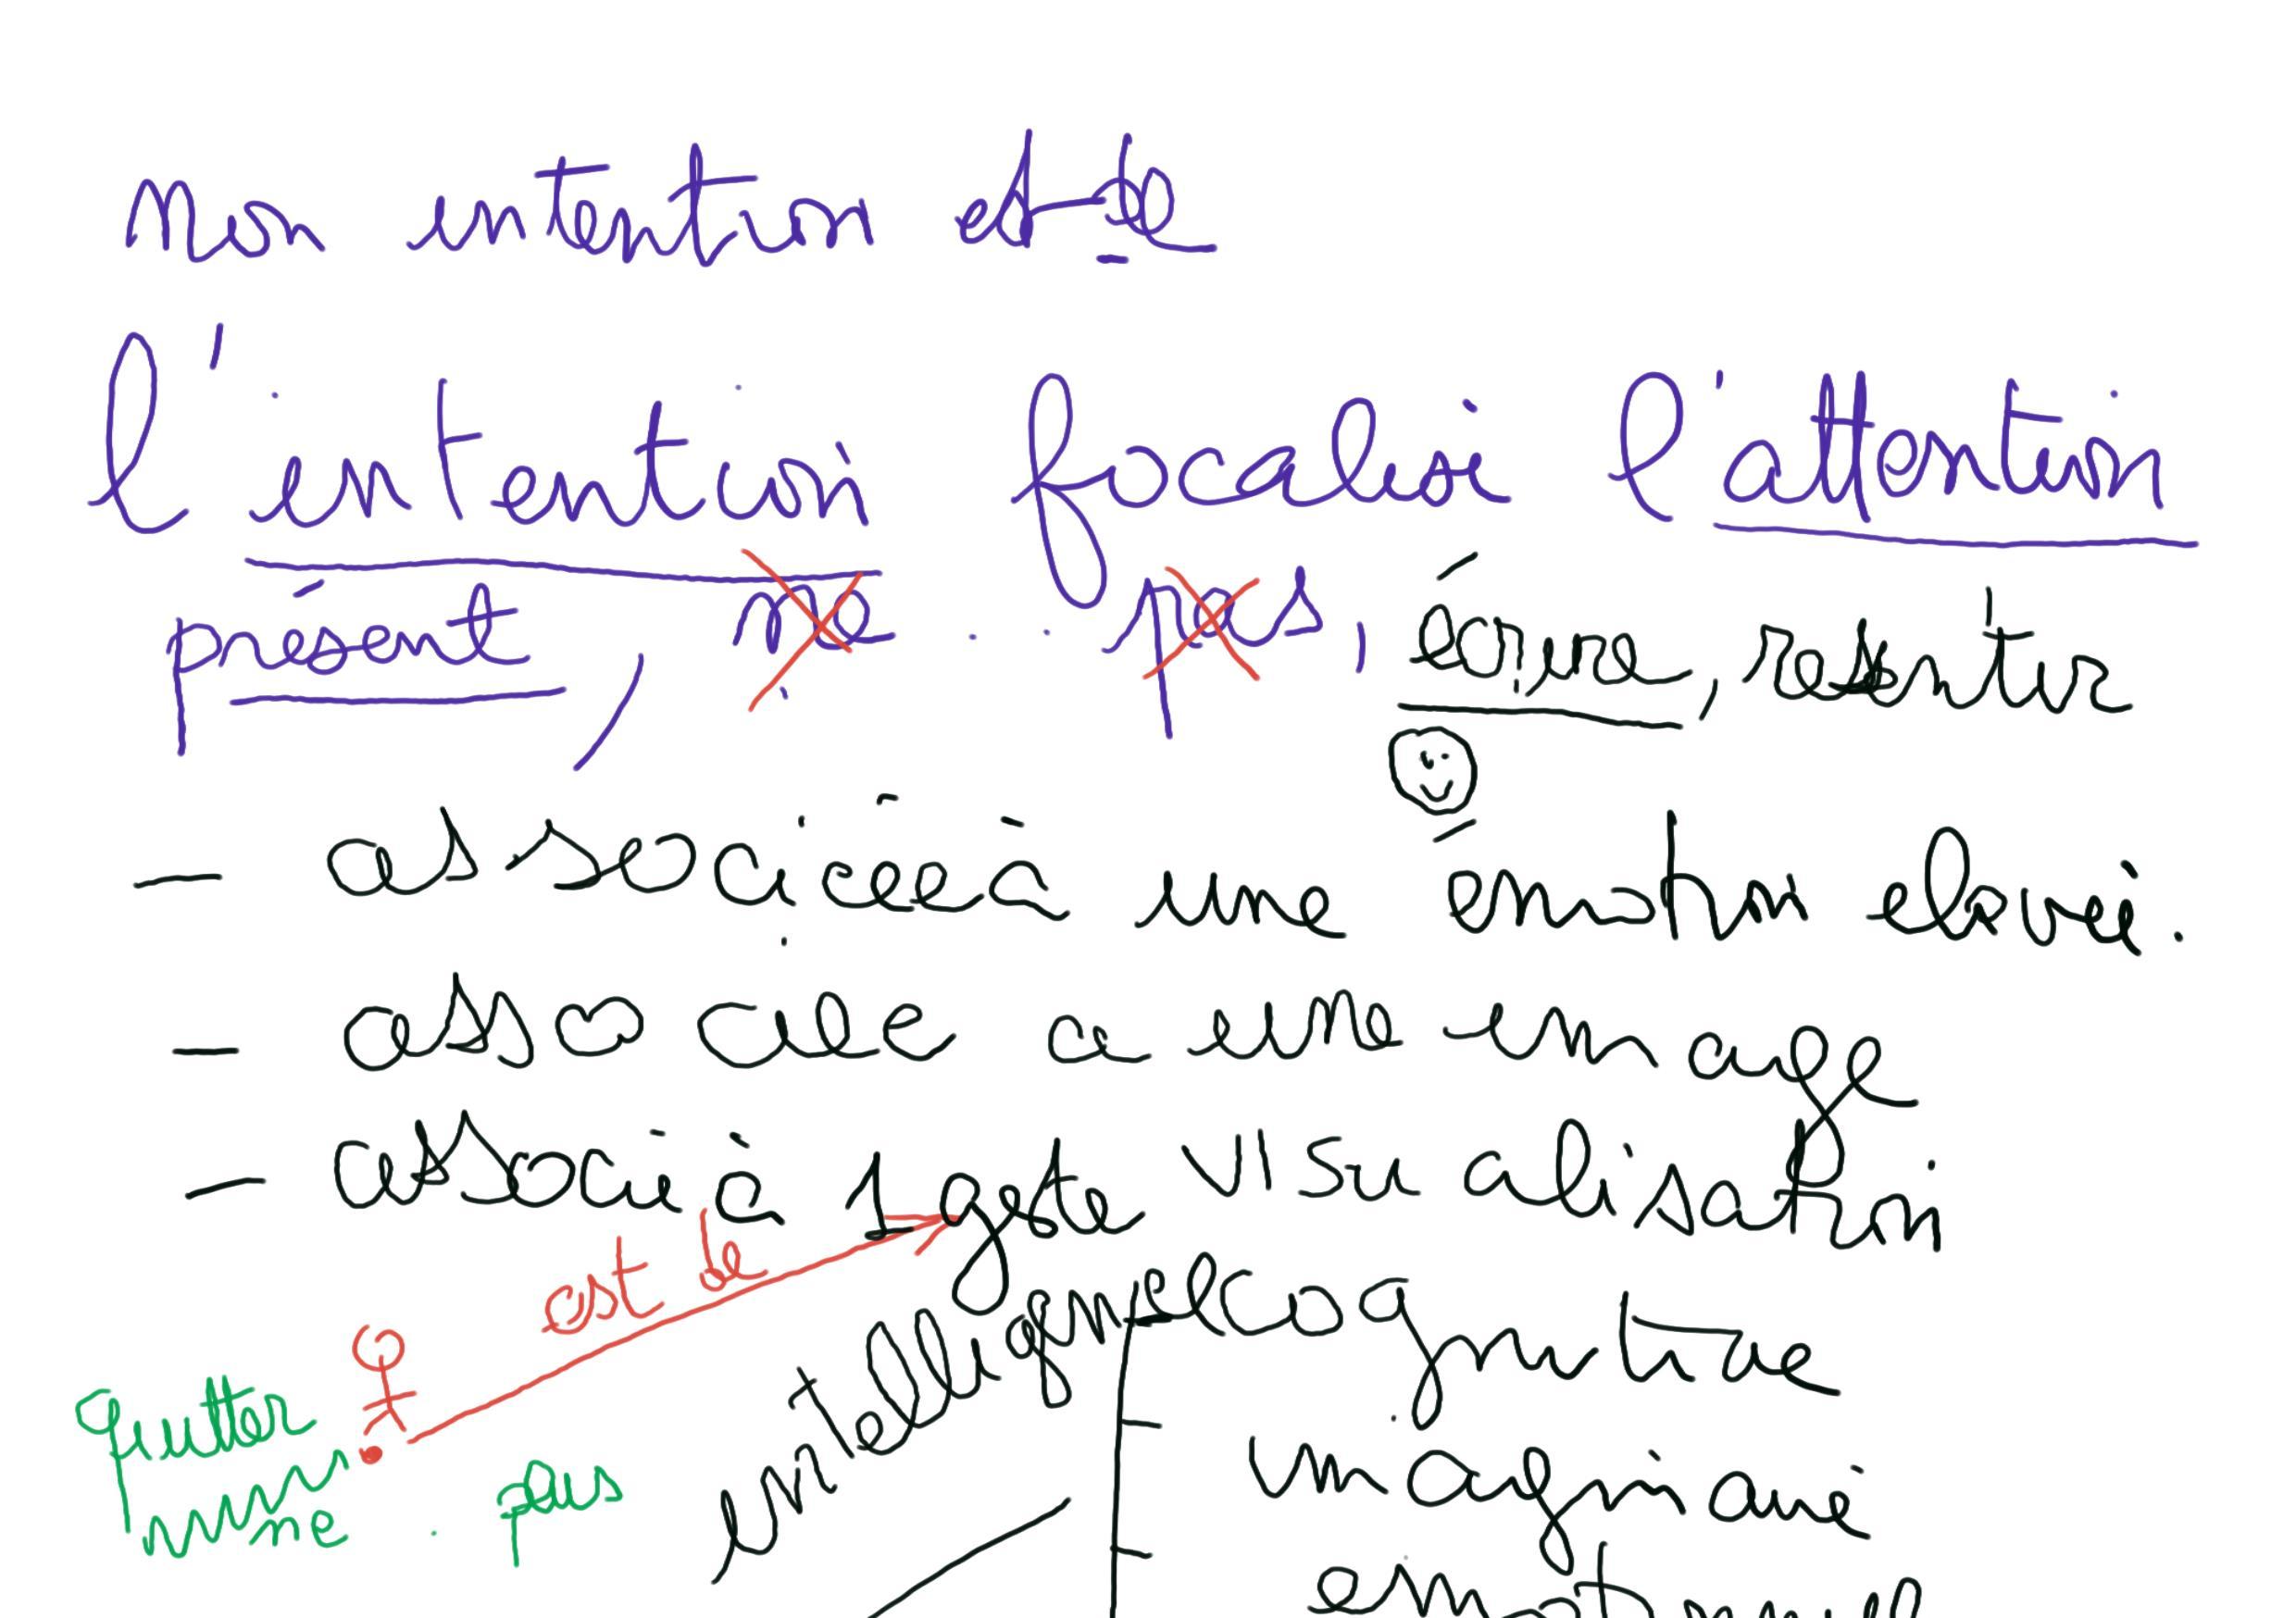 mon intention est de
l'intention focalise l'attention
présent, ne .. pas, écrire, ressentir
- associée à une émotion elevée.
- associée a une image
- associé à 1 geste visualisation
est de
intelligence cognitive
quitter
ne . pas
imaginaire